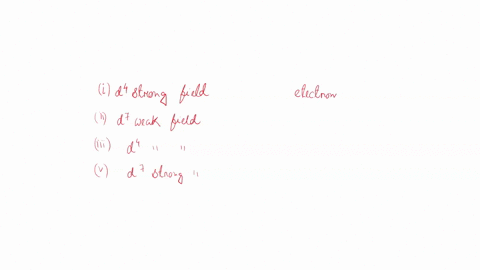 (i) d⁴ strong field electrow
(ii) d⁷ weak field
(iii) d⁴ " "
(v) d⁷ strong "